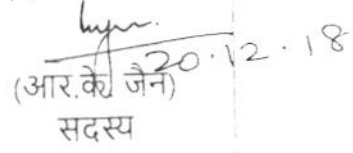 20.12.18
(आर.के. जैन)
सदस्य